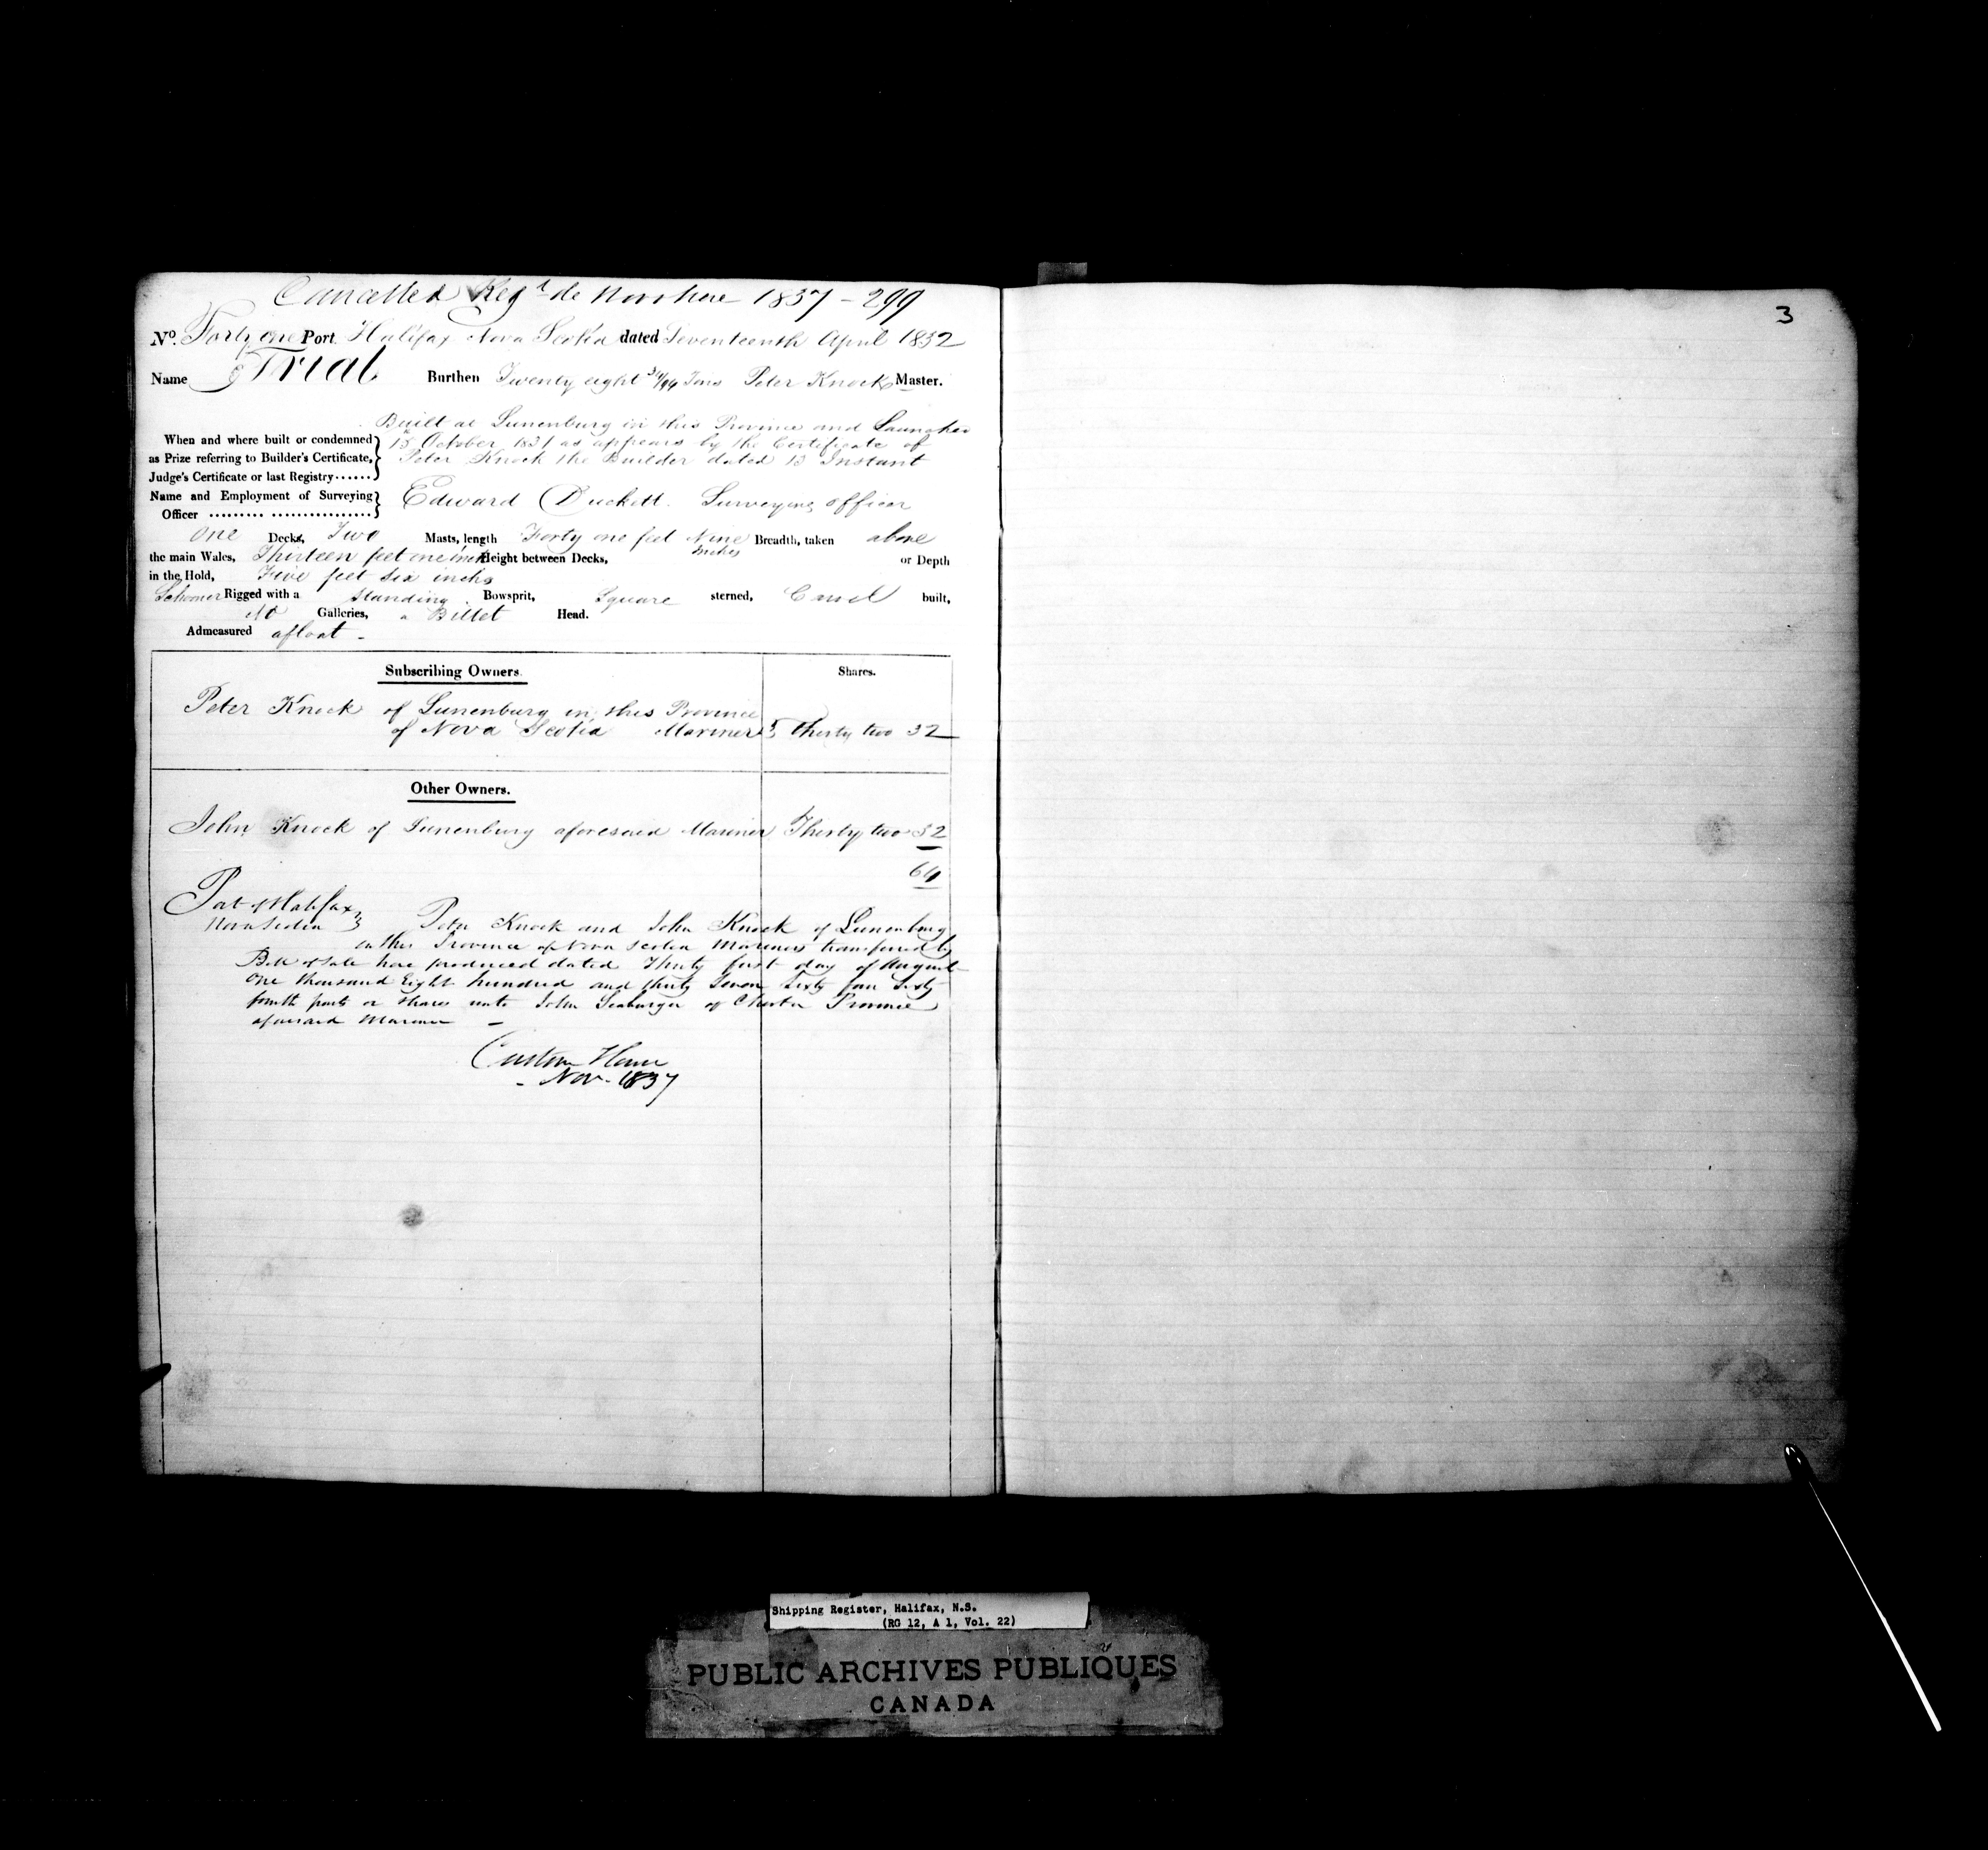 Cancelled Regd de Novo here 1837 - 299
3
No. Forty one Port Halifax Nova Scotia dated Seventeenth April 1832
Name Trial Burthen Twenty eight 34/94 Tons Peter Knock Master.
Built at Lunenburg in this Province and Launched
When and where built or condemned 15 October 1831 as appears by the Certificate of
as Prize referring to Builder's Certificate, Peter Knock the Builder dated 13 Instant
Judge's Certificate or last Registry......
Name and Employment of Surveying Edward Duckett. Surveying officer
Officer ......... ................
One Decks, Two Masts, length Forty one feet Nine Inches Breadth, taken above
the main Wales, Thirteen feet one inch Height between Decks, or Depth
in the Hold, Five feet six inchs
Schooner Rigged with a standing Bowsprit, Square sterned, Carvel built,
No Galleries, a Billet Head.
Admeasured afloat -
Subscribing Owners. Shares.
Peter Knock of Lunenburg in this Province
of Nova Scotia Mariner } Thirty two 32
Other Owners.
John Knock of Lunenburg aforesaid Mariner Thirty two 32
64
Port of Halifax
Nova Scotia } Peter Knock and John Knock of Lunenburg
in this Province of Nova Scotia Mariners transferred by
Bill of Sale here produced dated Thirty first day of August
One thousand Eight hundred and thirty Seven Sixty four Sixty
fourth parts or shares unto John Seaburger of Chester Province
aforesaid Mariner -
Custom House
- Nov. 1837
Shipping Register, Halifax, N.S.
(RG 12, A 1, Vol. 22)
PUBLIC ARCHIVES PUBLIQUES
CANADA